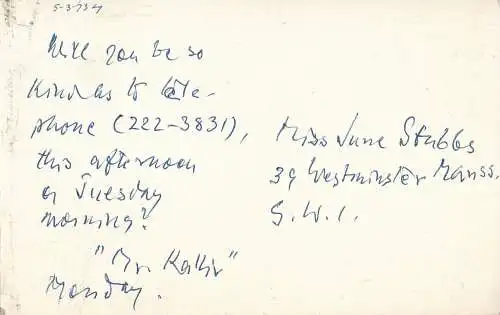 5-3-73
Will you be so
kind as to tele-
phone (222-3831),
this afternoon
or Tuesday
morning?
"Mr. Kallir"
Monday.
Miss June Stubbs
39 Westminster Manss.
S.W.1.